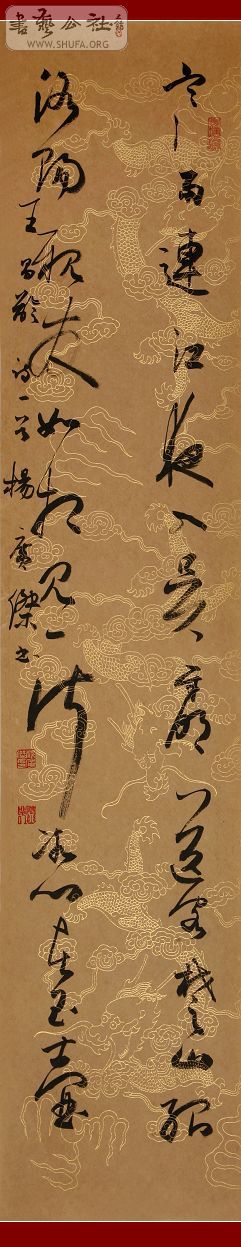 書藝公社
WWW.SHUFA.ORG
寒雨連江夜入吳平明送客楚山孤
洛陽親友如相問一片冰心在玉壺
王昌齡詩一首楊廣傑書